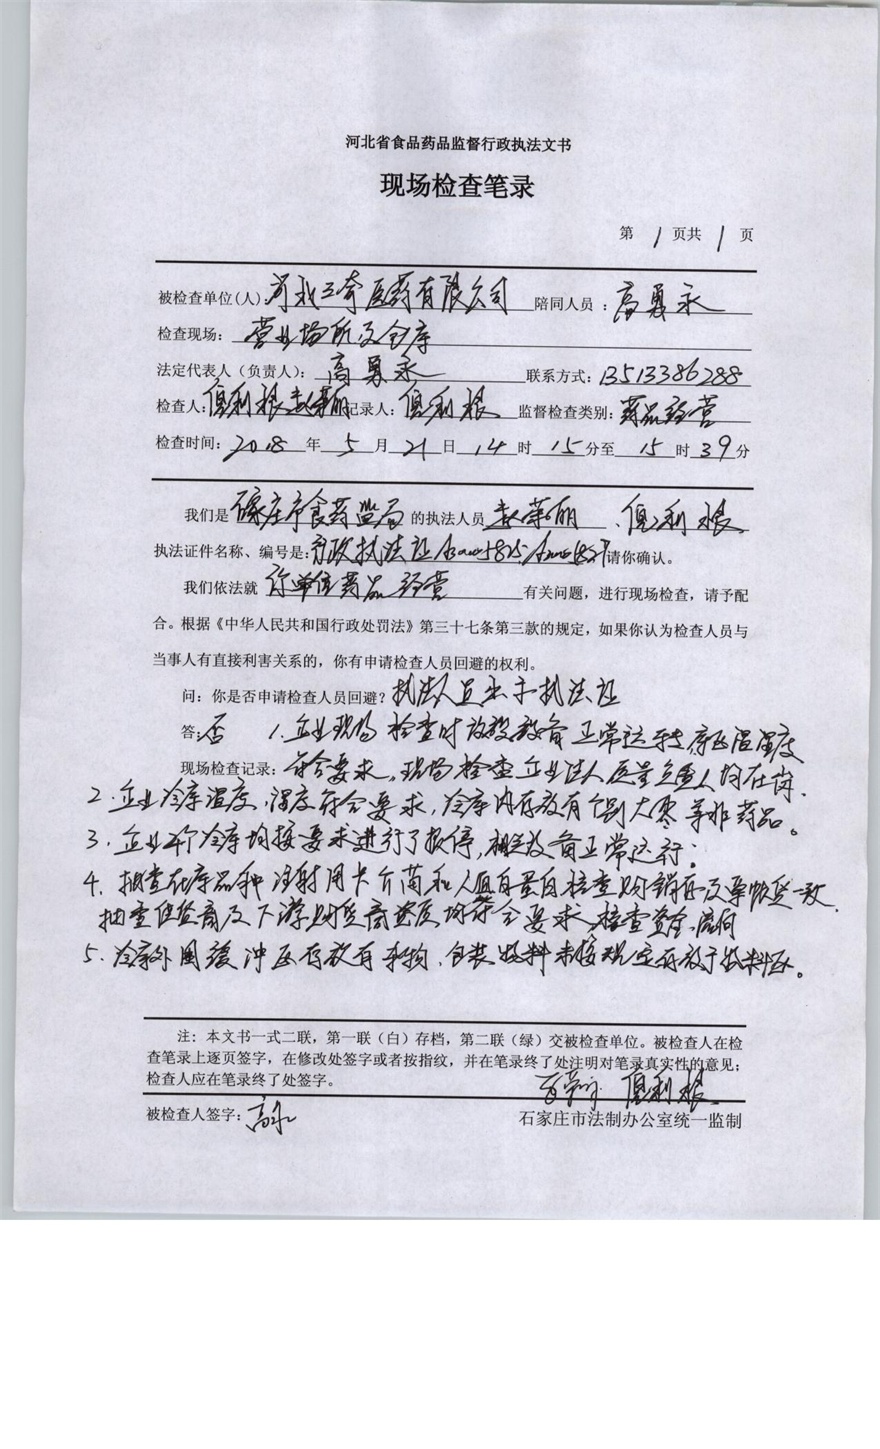 河北省食品药品监督行政执法文书
现场检查笔录
第 1 页共 1 页
被检查单位(人): 河北三奇医药有限公司 陪同人员 : 高勇永
检查现场: 营业场所及仓库
法定代表人（负责人）: 高勇永 联系方式: 13513386288
检查人: 利根 记录人: 利根 监督检查类别: 药品经营
检查时间: 2018 年 5 月 21 日 14 时 15 分至 15 时 39 分
我们是 石家庄市食药监局 的执法人员 赵荣丽、 利根
执法证件名称、编号是: 行政执法证 请你确认。
我们依法就 你单位药品经营 有关问题，进行现场检查，请予配
合。根据《中华人民共和国行政处罚法》第三十七条第三款的规定，如果你认为检查人员与
当事人有直接利害关系的，你有申请检查人员回避的权利。
问: 你是否申请检查人员回避? 执法人员出示执法证
答: 否 1.企业现场检查时设施设备正常运转,库区温湿度
现场检查记录: 符合要求。现场检查企业法人质量负责人均在岗.
2.企业冷库温度、湿度符合要求,冷库内存放有个别大枣等非药品。
3.企业4个冷库均按要求进行了报停,相关设备正常运行.
4.抽查在库品种注射用卡介菌和人血白蛋白检查购销存及票帐货一致.
抽查供货商及下游购货商资质均符合要求 检查资金流向
5.冷库外围缓冲区存放有杂物、包装物料未按规定存放于物料区。
注: 本文书一式二联，第一联（白）存档，第二联（绿）交被检查单位。被检查人在检
查笔录上逐页签字，在修改处签字或者按指纹，并在笔录终了处注明对笔录真实性的意见;
检查人应在笔录终了处签字。
利根
被检查人签字: 高永 石家庄市法制办公室统一监制